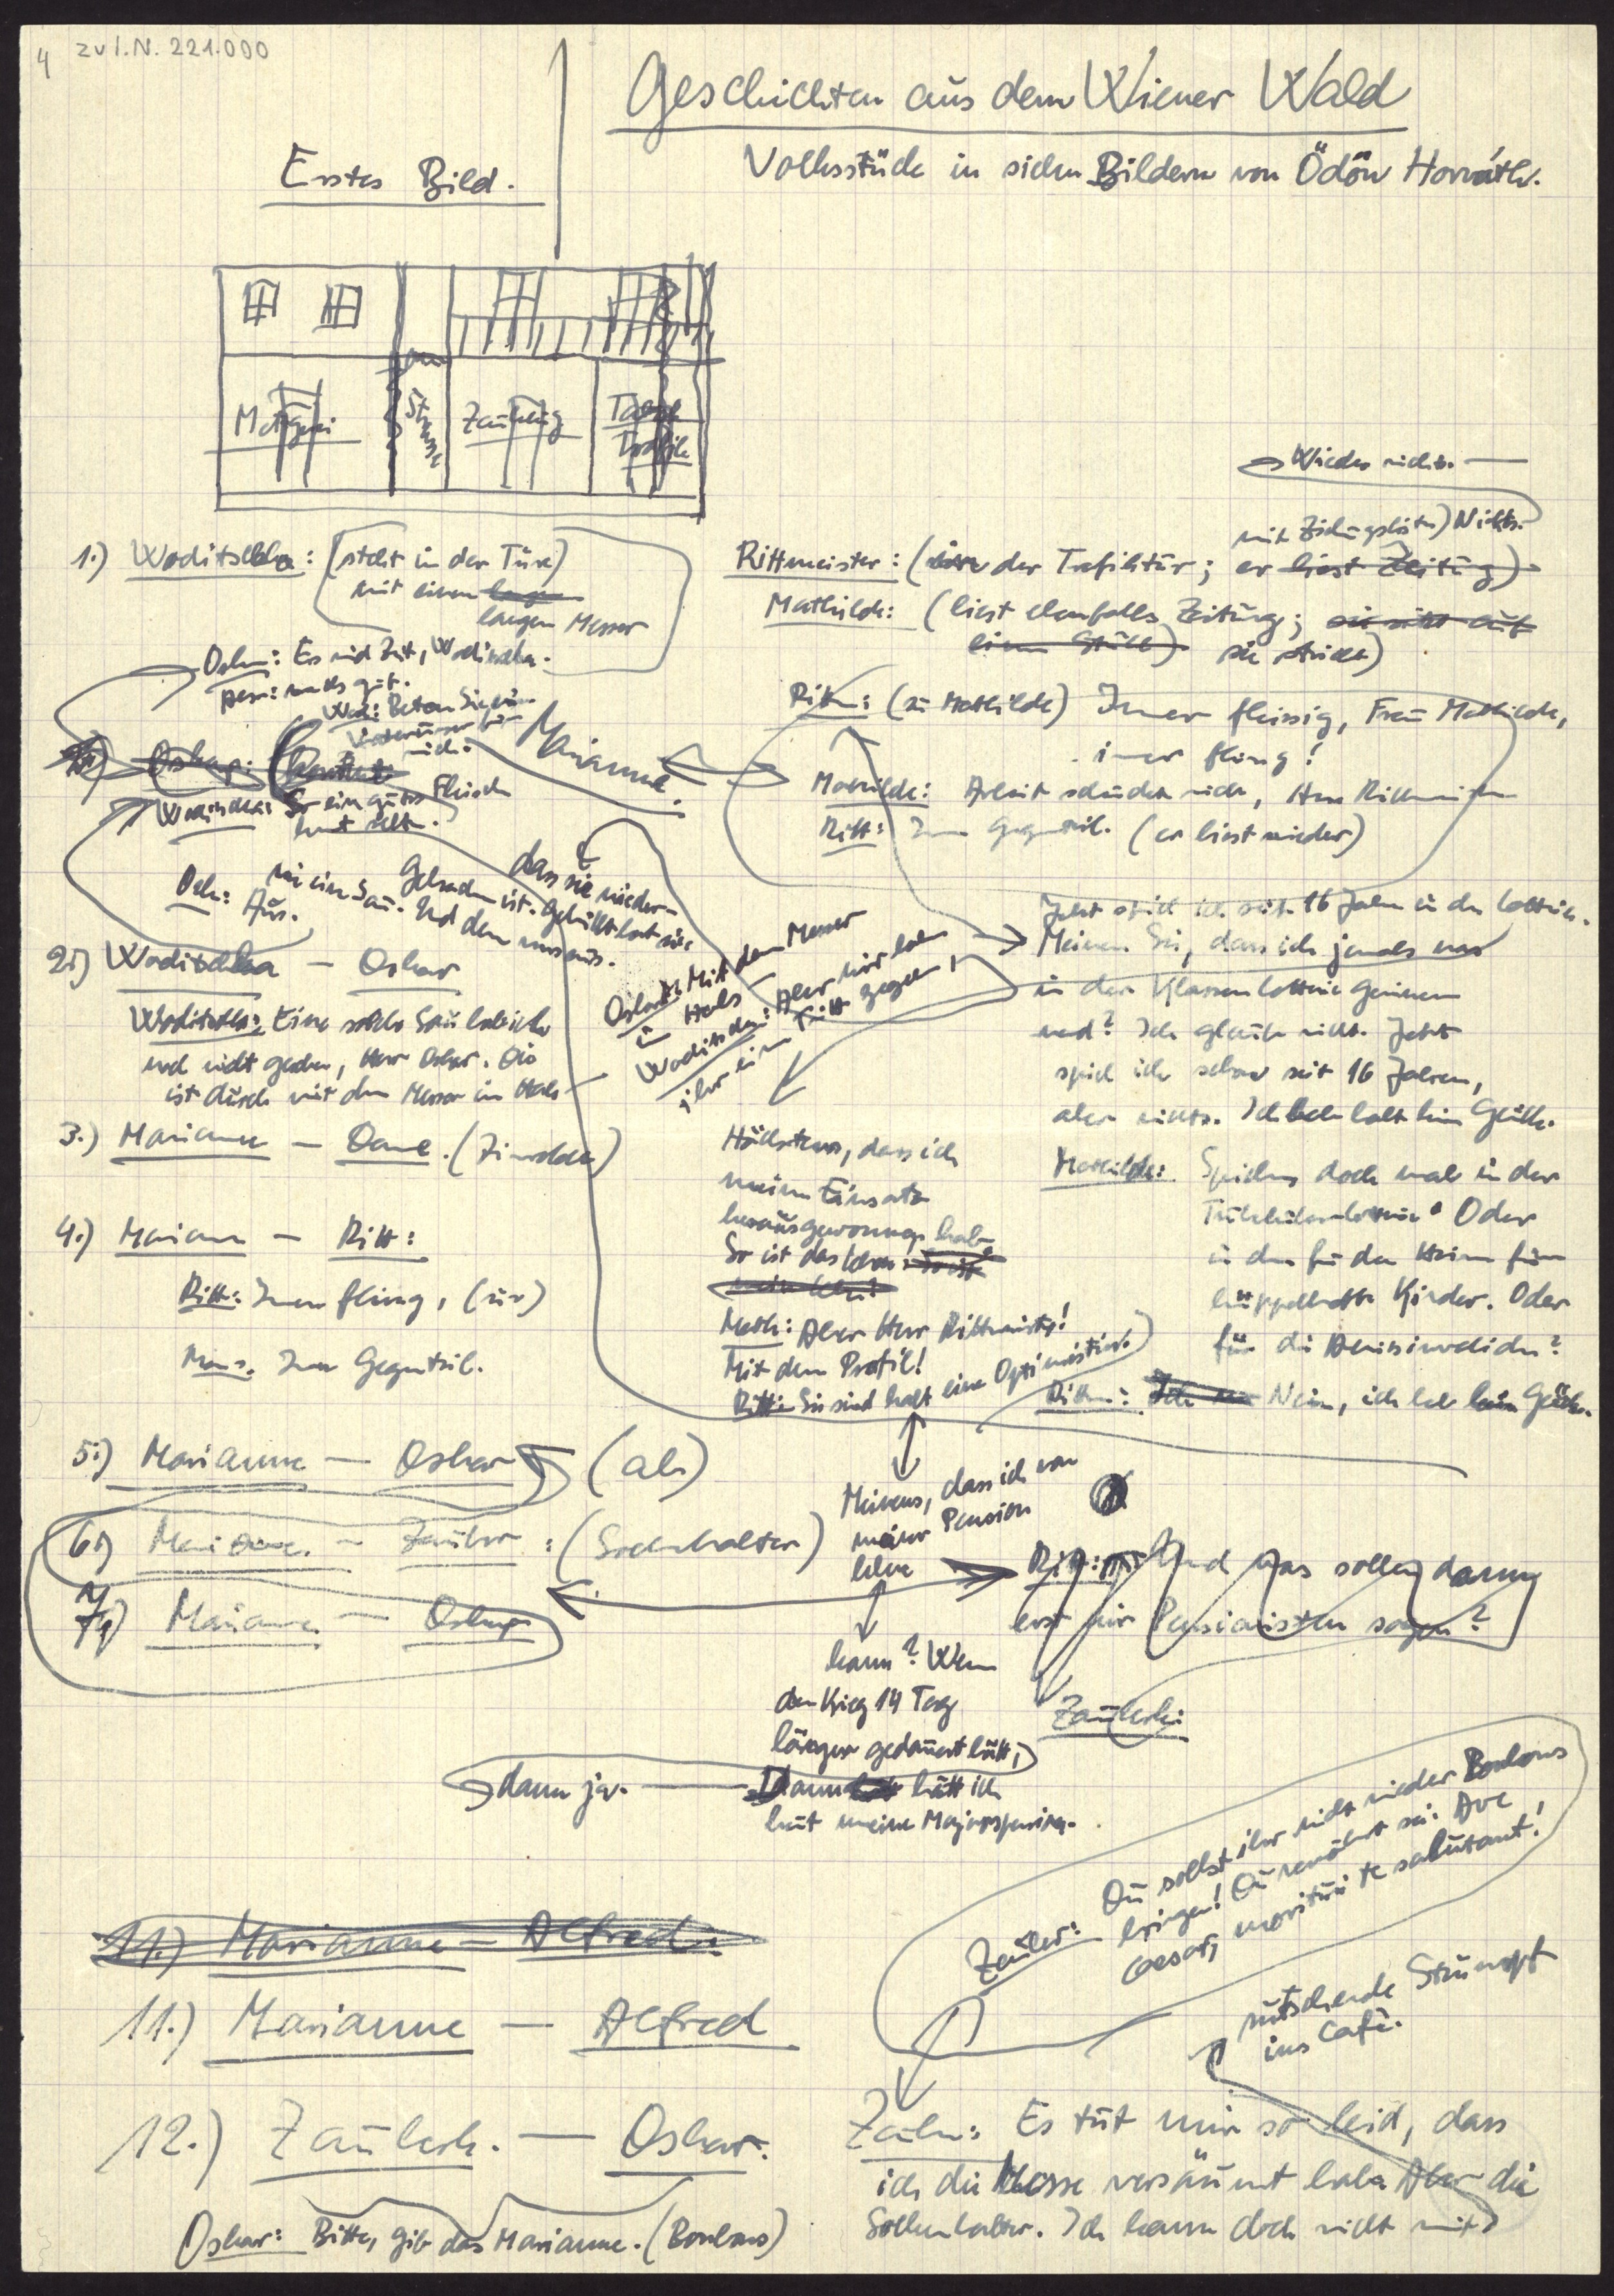 4 zu I.N. 221.000
Geschichten aus dem Wiener Wald
Volksstück in sieben Bildern von Ödön Horváth.
Erstes Bild.
Metzgerei
Strasse
Zauberkg
Tabak
Trafik
Wieder nichts.
1.) Woditschka: (steht in der Türe)
mit einem
langen Messer
Osk: Es wird Zeit, Woditschka.
Aber: machs gut.
Wod: Beten Sie ein
Vaterunser für
mich.
Oskar:
Woditschka: So ein gutes Fleisch
hat selten.
Marianne.
Osk: wie eine Sau. Und dann muss
Aus.
Gebrüllt hat sie
dass sie nieder-
2.) Woditschka — Oskar
Woditschka: Eine solche Sau hab ich
noch nicht gesehen, Herr Oskar. Die
ist durch mit dem Messer im Hals
Oskar: Mit dem Messer
im Hals —
Woditschka: Aber wir haben
ihr ein Tritt gegeben!
3.) Marianne — Dame. (Zinnsoldaten)
4.) Mariann — Ritt:
Ritt: Immer fleissig, (ab)
Mar. Im Gegenteil.
5.) Marianne — Oskar (ab)
6.) Marianne. — Zauber: (Sockenhalter)
7.) Marianne — Oskar
Rittmeister: (in der Trafiktür; er liest Zeitung)
mit Ziehungsliste) Nichts.
Mathilde: (liest ebenfalls Zeitung; sie sitzt auf
einem Stuhl) sie strickt)
Rittm: (zu Mathilde) Immer fleissig, Frau Mathilde,
immer fleissig!
Mathilde: Arbeit schändet nicht, Herr Rittmeister
Ritt: Im Gegenteil. (er liest wieder)
Jetzt spiel ich seit 16 Jahren in der Lotterie.
Meinen Sie, dass ich jemals was
in der Klassenlotterie gewinnen
werd? Ich glaub nicht. Jetzt
spiel ich schon seit 16 Jahren,
aber nichts. Ich hab halt kein Glück.
Mathilde: Spielens doch mal in der
Tuberkulosenlotterie? Oder
in der für das Heim für
krüppelhafte Kinder. Oder
für die Kriegsinvaliden?
Rittm: Nein, ich hab kein Glück.
Höchstens, dass ich
meinen Einsatz
herausgewonnen hab.
So ist das Leben
Math: Aber Herr Rittmeister!
Mit dem Profil!
Ritt: Sie sind halt eine Optimistin.
Meinens, dass ich von
meiner Pension
leben
kann? Wenn
der Krieg 14 Tag
länger gedauert hätt,
Dann hätt ich
heut meine Majorspension.
dann ja.
Ritt: Und was sollen dann
erst wir Pensionisten sagen?
Zauberk:
Zauber: Du sollst ihr nicht wieder Bonbons
bringen! Du verwöhnst sie. Ave
Caesar, morituri te salutant!
rutschende Strumpf
ins Café.
11.) Marianne — Alfred.
11.) Marianne — Alfred
12.) Zauberk. — Oskar.
Oskar: Bitte, gib das Marianne. (Bonbons)
Zaub: Es tut mir so leid, dass
ich die Messe versäumt habe. Aber die
Sockenhalter. Ich kann doch nicht mit